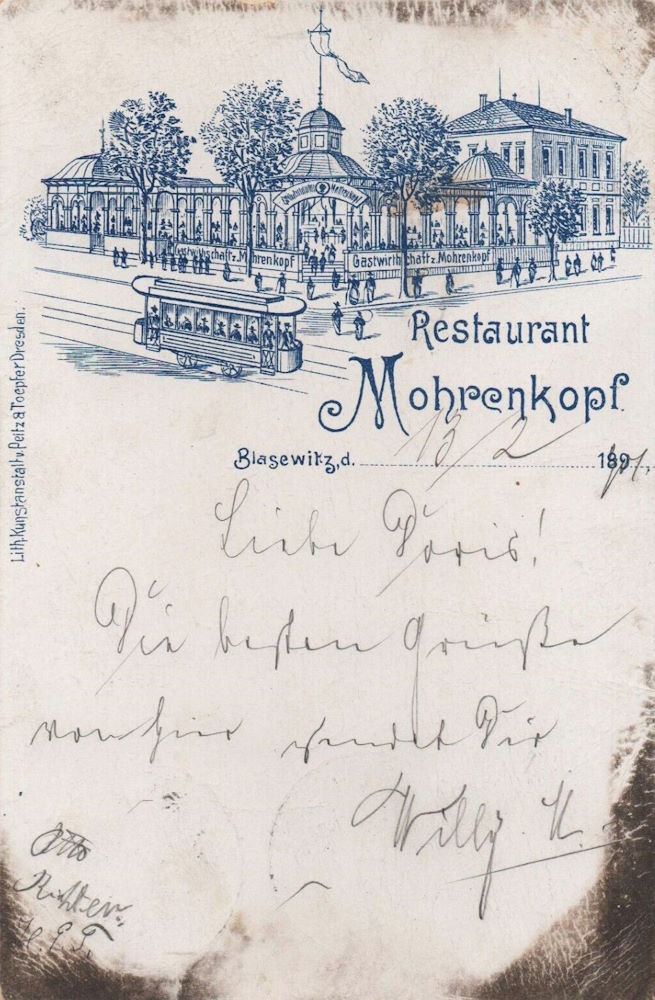 Gastwirthschaft z. Mohrenkopf
Gastwirthschaft z. Mohrenkopf
Restaurant
Mohrenkopf.
Blasewitz, d. 13/2 189
Lith. Kunstanstalt v. Peitz & Toepfer Dresden.
Liebe Doris!
Die besten Grüße
von hier sendet Dir
Willy K.
Otto
Richter